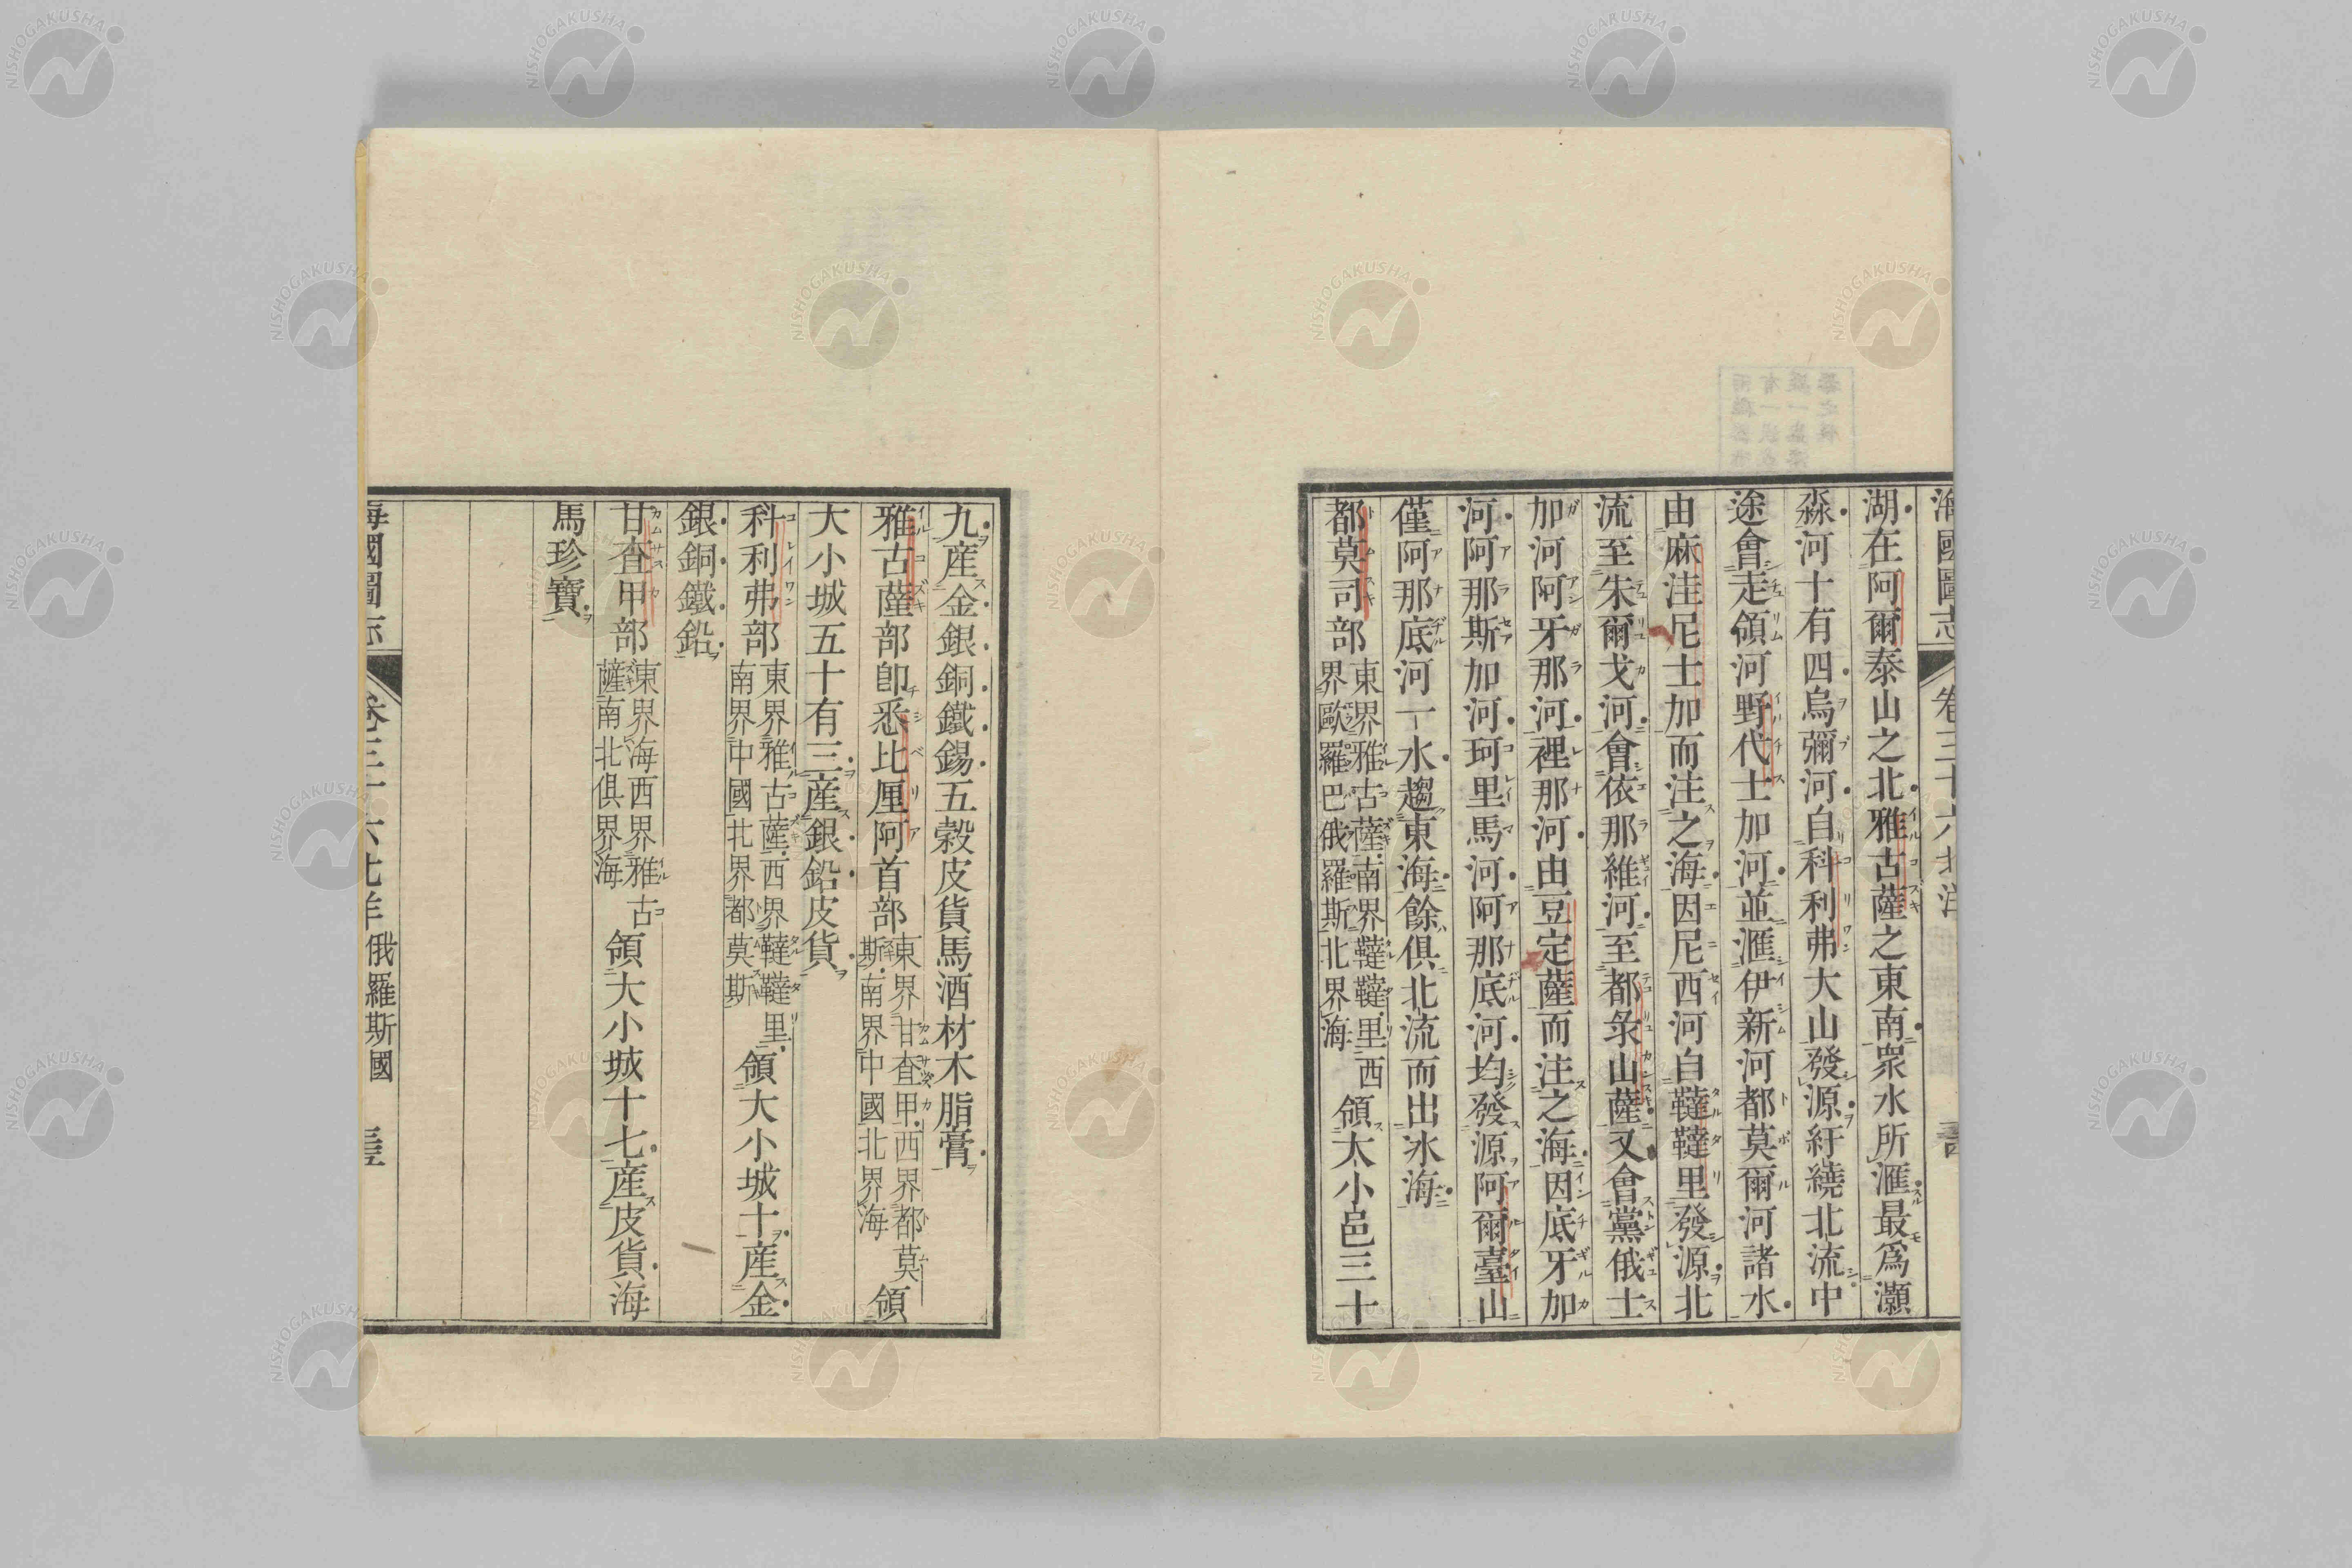 海國圖志 卷三十六 北洋
湖在阿爾泰山之北雅古薩之東南衆水所滙最爲灝
淼河十有四烏彌河自科利弗大山發源紆繞北流中
途會走領河野代士加河並滙伊新河都莫爾河諸水
由麻洼尼士加而注之海因尼西河自韃韃里發源北
流至朱爾戈河會依那維河至都彔山薩又會黨俄士
加河阿牙那河裡那河由豆定薩而注之海因底牙加
河阿那斯加河珂里馬河阿那底河均發源阿爾臺山
僅阿那底河一水趨東海餘俱北流而出氷海
都莫司部東界雅古薩南界韃韃里西界歐羅巴俄羅斯北界海領大小邑三十
九産金銀銅鐵錫五穀皮貨馬酒材木脂膏
雅古薩部卽悉比厘阿首部東界甘査甲西界都莫斯南界中國北界海領
大小城五十有三産銀鉛皮貨
科利弗部東界雅古薩西界韃韃里南界中國北界都莫斯領大小城十産金
銀銅鐵鉛
甘査甲部東界海西界雅古薩南北俱界海領大小城十七産皮貨海
馬珍寶
海國圖志 卷三十六 北洋 俄羅斯國
NISHOGAKUSHA